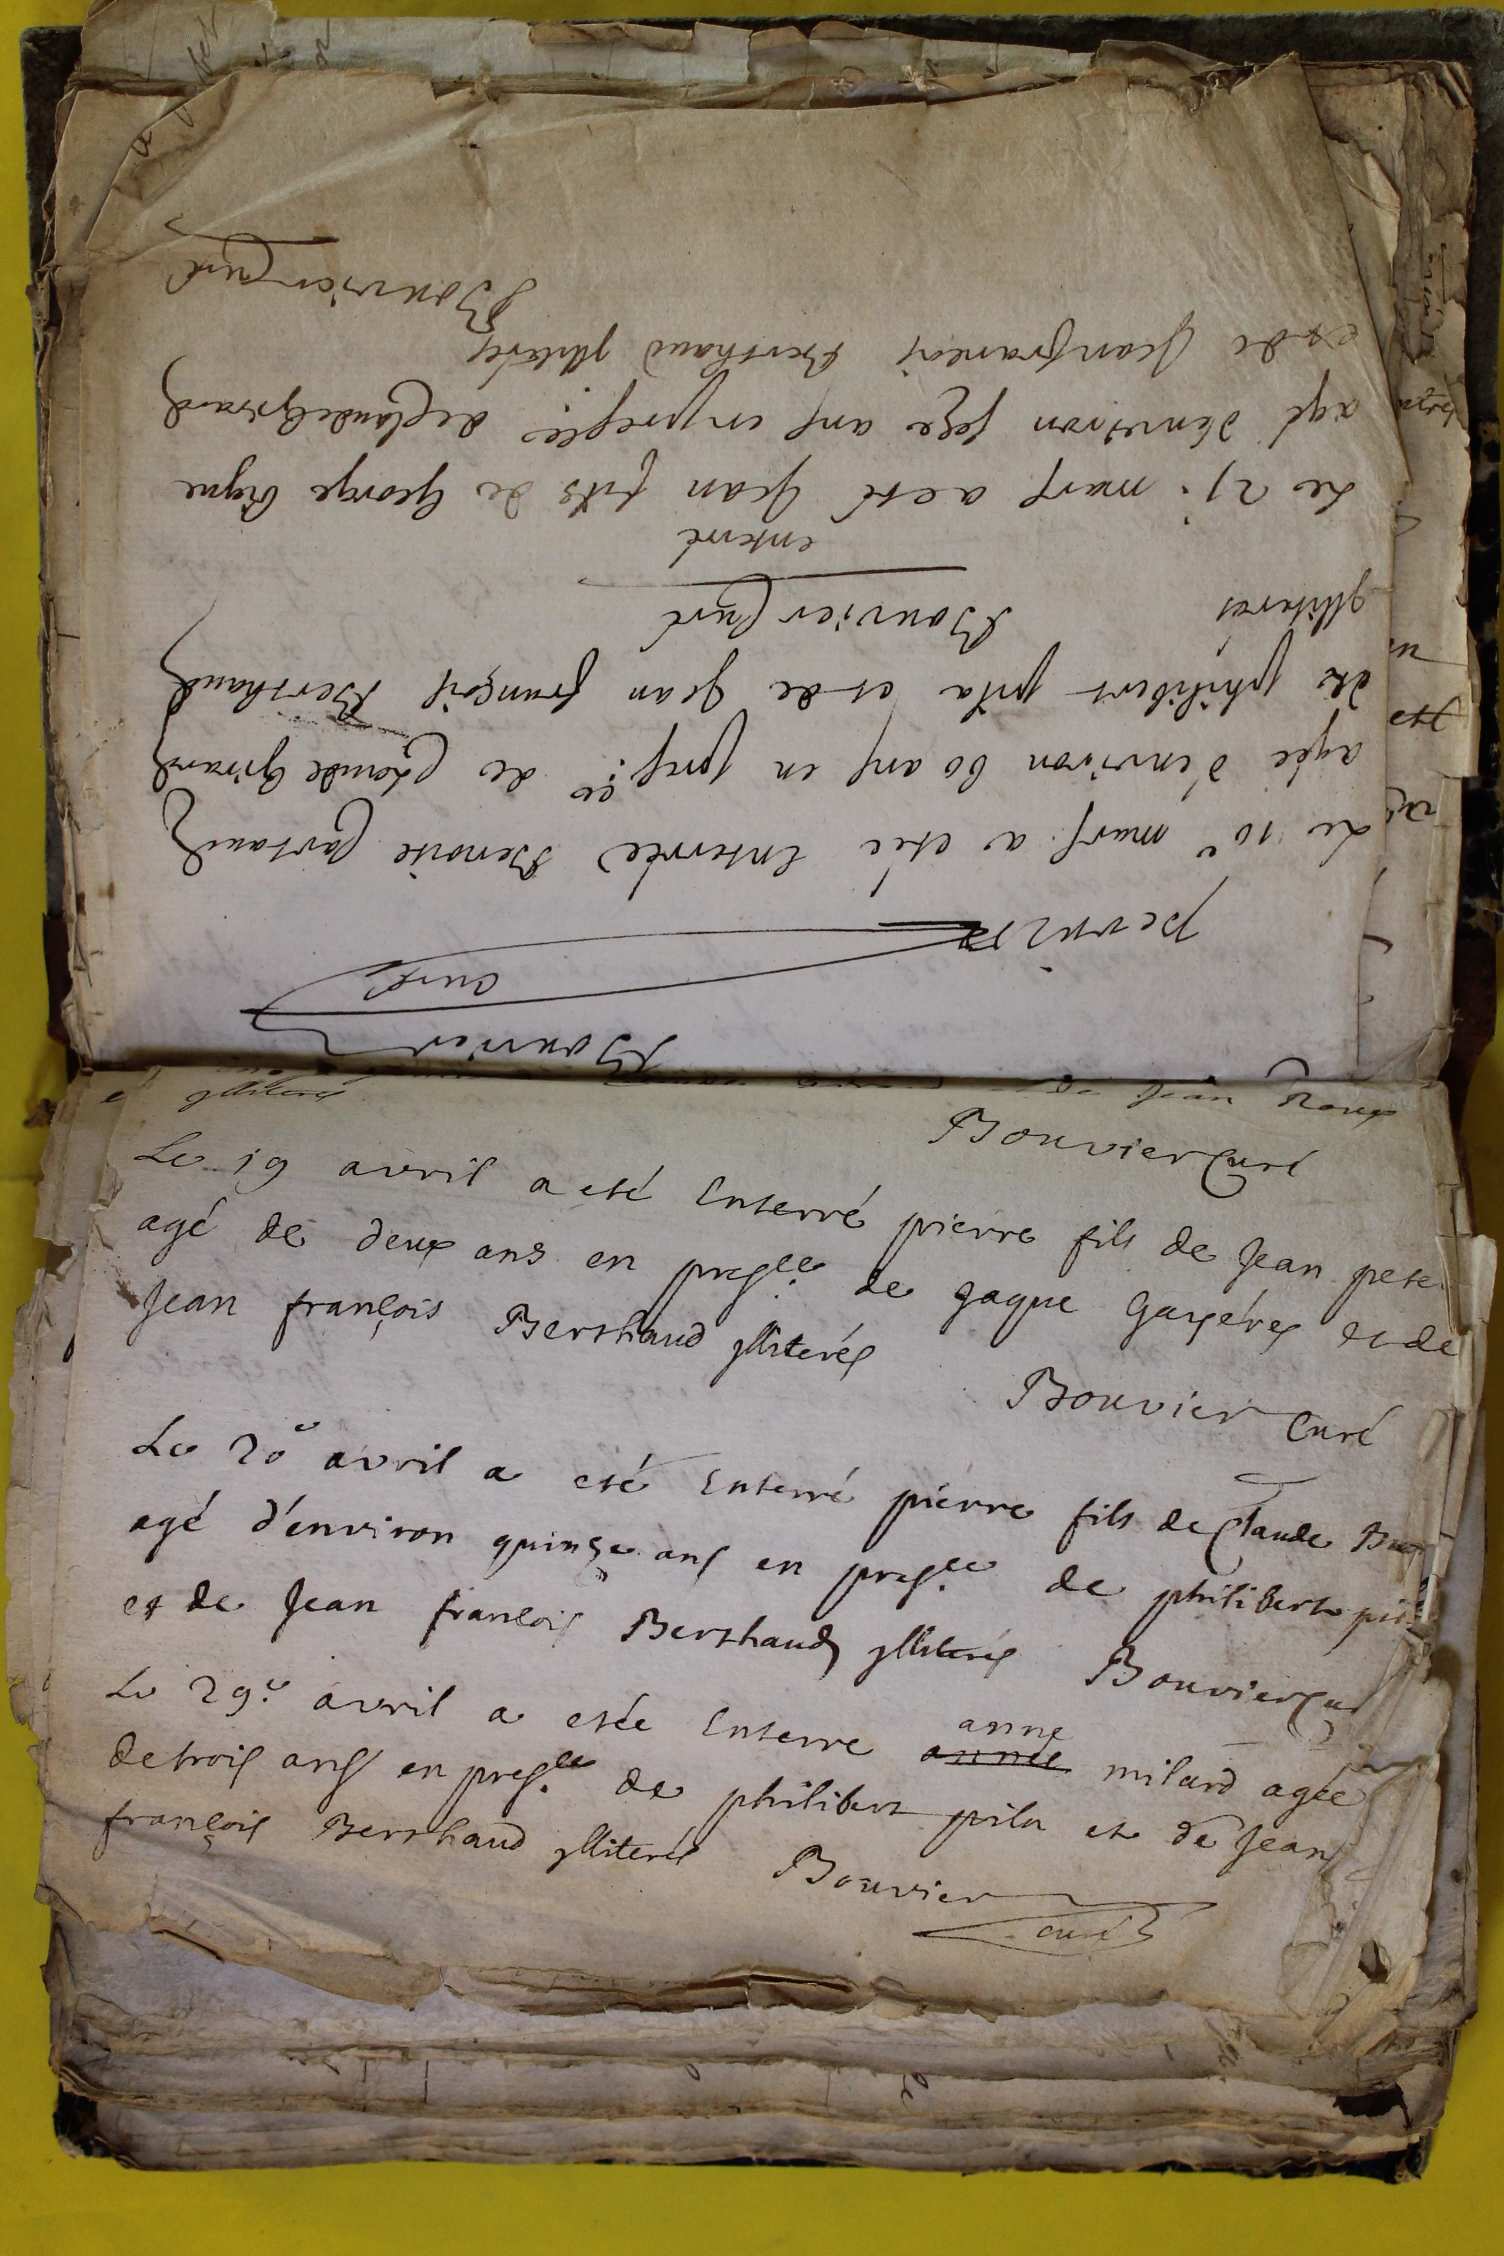 Bouvier
curé
perrin
Le 10e mars a etée Enterrée Benoite
agée d'environ 60 ans en presce de Claude Girard
de philibert pila et de Jean françois Berthaud
ylliterés
Bouvier Curé
enterré
Le 21 mars a eté Jean fils de George
agé d'environ seze ans en presce de Claude Girard
et de Jean francois Berthaud ylliterés
Bouvier Curé
de Jean Roux
ylliterés
Bouvier Curé
Le 19 avril a eté Enterré pierre fils de Jean
agé de deux ans en presce de et de
Jean françois Berthaud yllterés
Bouvier Curé
Le 20e avril a eté Enterré pierre fils de Claude
agé d'environ quinze ans en presce de philibert
et de Jean francois Berthaud ylliterés Bouvier
anne
Le 29e avril a etée Enterre année milard agée
de trois ans en presce de philibert pila et de Jean
françois Berthaud ylliterés Bouvier
curé